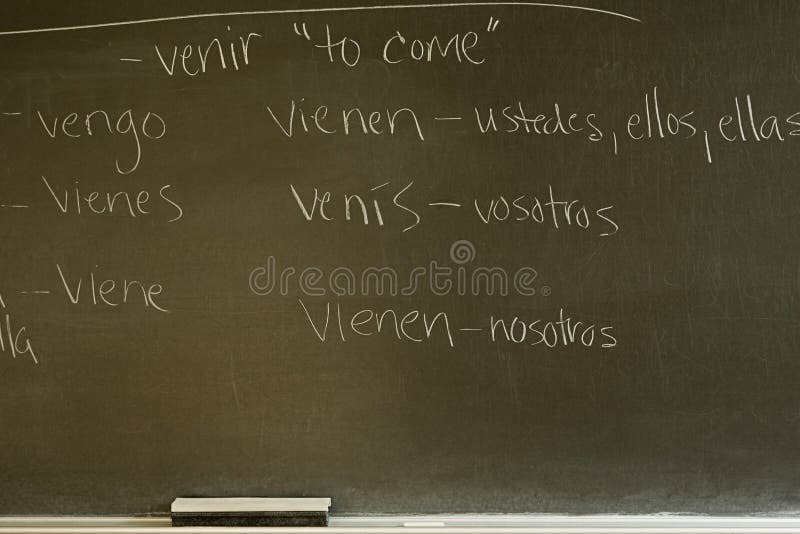 - venir "to come"
- vengo vienen - ustedes, ellos, ellas
- vienes venís - vosotros
- viene
lla
vienen - nosotros
dreamstime